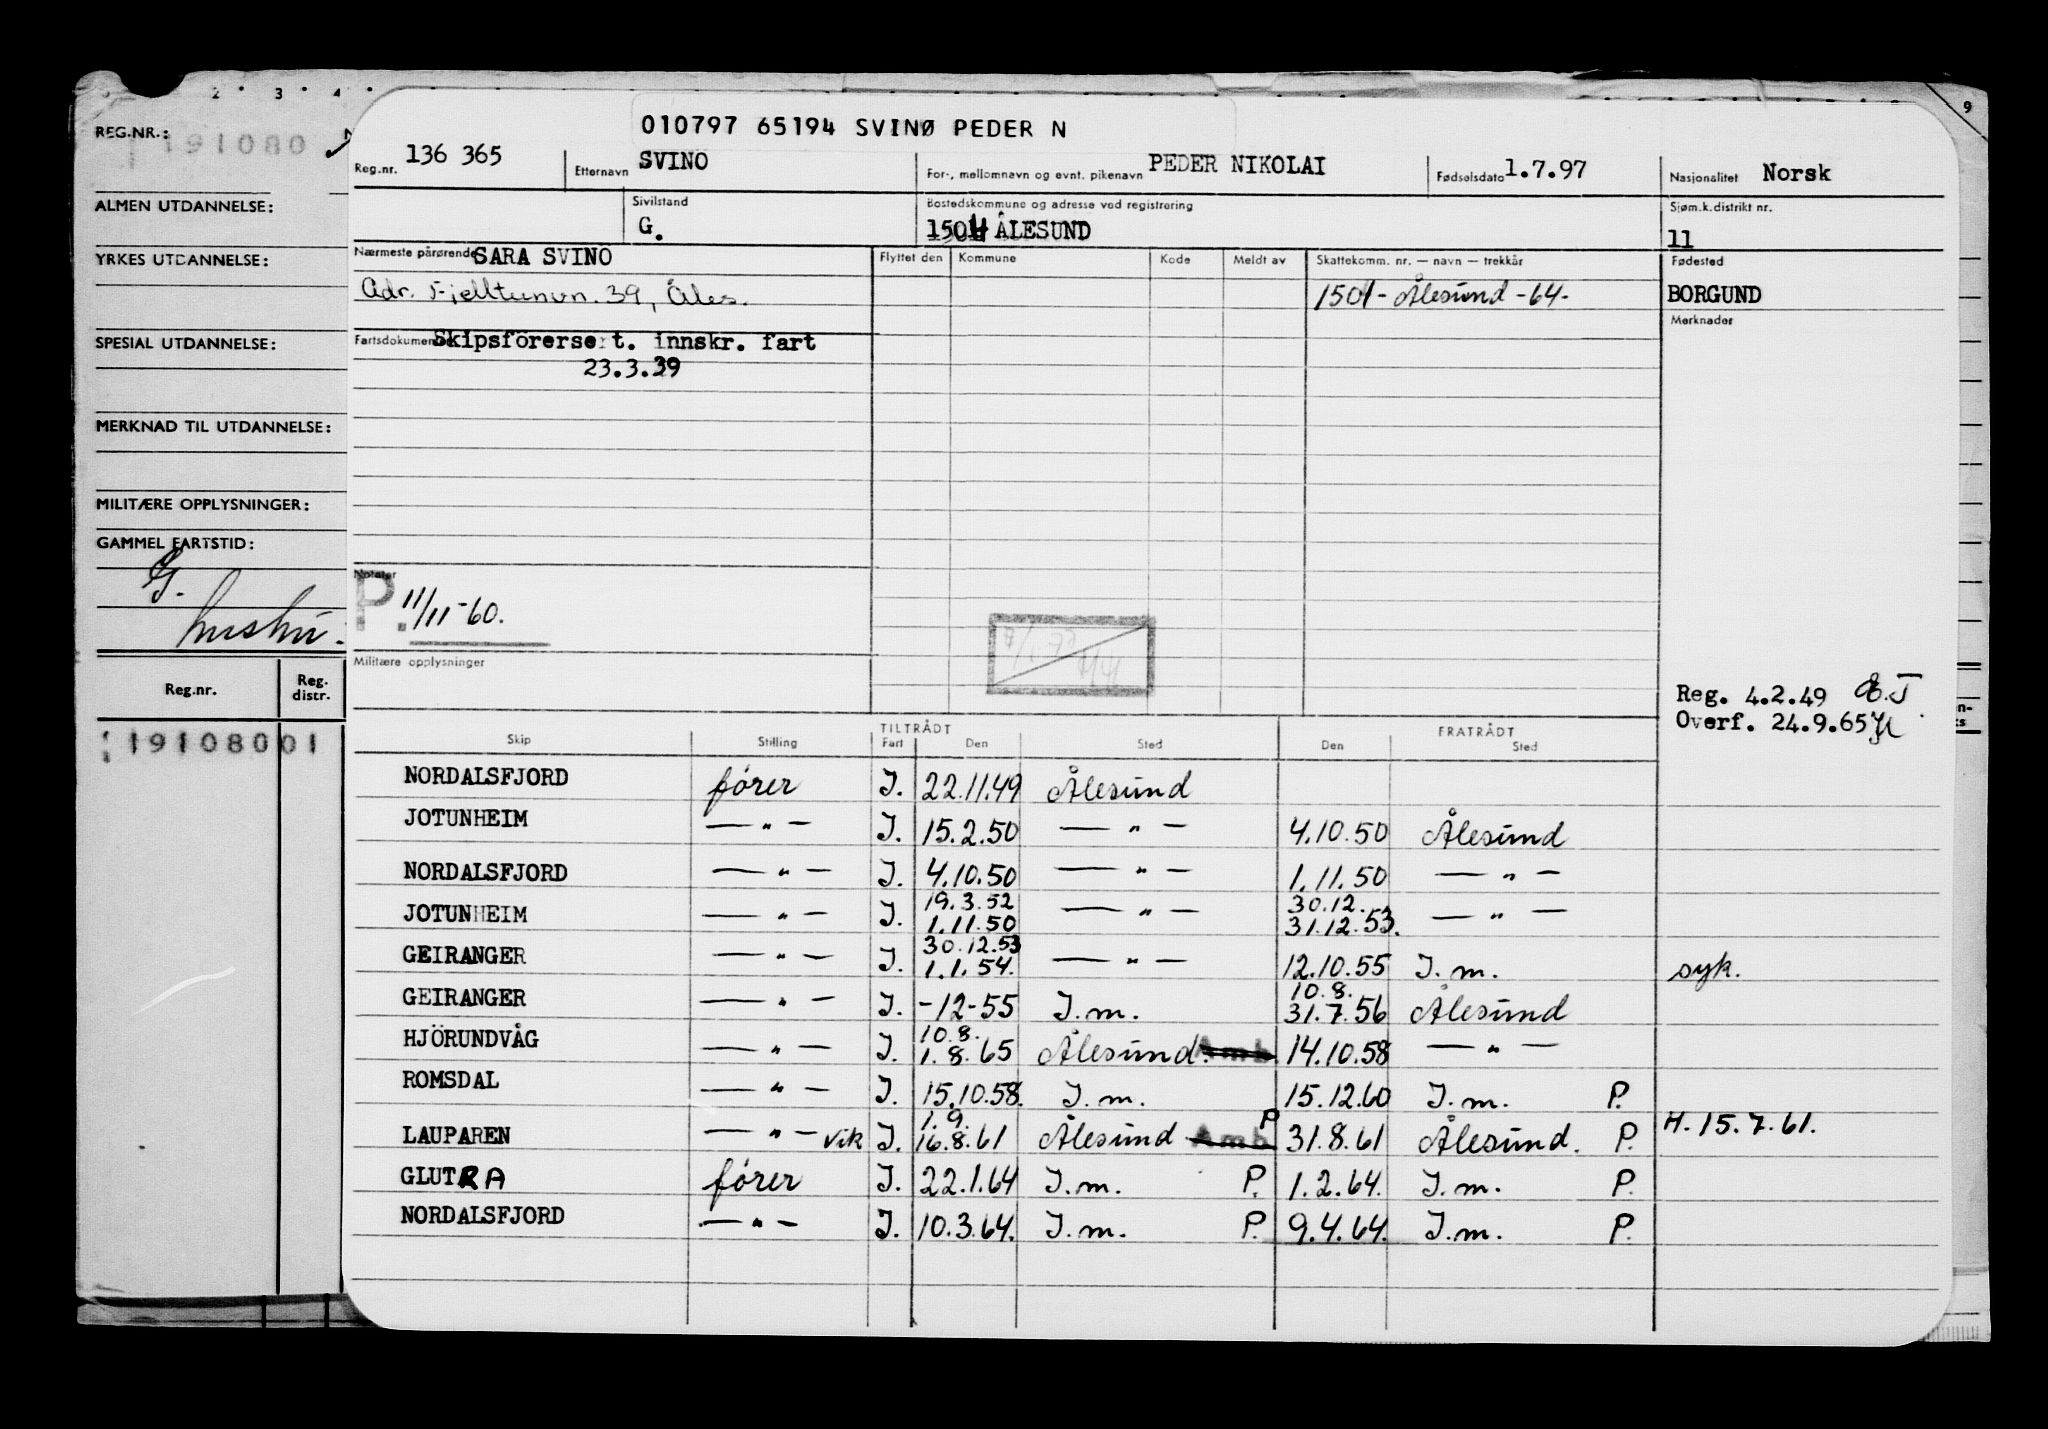 2 · 3 · 4 · 9
REG.NR.: 191080
ALMEN UTDANNELSE:
YRKES UTDANNELSE:
SPESIAL UTDANNELSE:
MERKNAD TIL UTDANNELSE:
MILITÆRE OPPLYSNINGER:
GAMMEL FARTSTID:
G.
Reg.nr. Reg. distr.
19108001
010797 65194 SVINØ PEDER N
Reg.nr. 136 365 Etternavn SVINO For-, mellomnavn og evnt. pikenavn PEDER NIKOLAI Fødselsdato 1.7.97 Nasjonalitet Norsk
Sivilstand G. Bostedskommune og adresse ved registrering 1504 ÅLESUND Sjøm.k.distrikt nr. 11
Nærmeste pårørende SARA SVINO Flyttet den Kommune Kode Meldt av Skattekomm. nr. — navn — trekkår Fødested
Adr. Fjelltunvn. 39, Åles. 1501 - Ålesund - 64 - BORGUND
Merknader
Fartsdokumenter Skipsförersert. innskr. fart
23.3.39
Notater
P. 11/11-60.
Militære opplysninger
Reg. 4.2.49
Overf. 24.9.65
TILTRÅDT FRATRÅDT
Skip Stilling Fart Den Sted Den Sted
NORDALSFJORD fører I. 22.11.49 Ålesund
JOTUNHEIM — " — I. 15.2.50 — " — 4.10.50 Ålesund
NORDALSFJORD — " — I. 4.10.50 — " — 1.11.50 — " —
19.3.52 30.12.
JOTUNHEIM — " — I. 1.11.50 — " — 31.12.53. — " —
30.12.53
GEIRANGER — " — I. 1.1.54. — " — 12.10.55 I.m. syk.
10.8.
GEIRANGER — " — I. -12-55 I.m. 31.7.56 Ålesund
10.8.
HJÖRUNDVÅG — " — I. 1.8.65 Ålesund. Amb. 14.10.58 — " —
ROMSDAL — " — I. 15.10.58. I.m. 15.12.60 I.m. P.
1.9. P
LAUPAREN — " — vik I. 16.8.61 Ålesund Amb 31.8.61 Ålesund. P. H. 15.7.61.
GLUTRA fører I. 22.1.64 I.m. P. 1.2.64. I.m. P.
NORDALSFJORD — " — I. 10.3.64. I.m. P. 9.4.64. I.m. P.